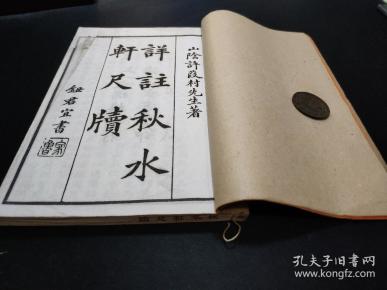 山陰許葭村先生著
詳註秋水
軒尺牘
鈕君宜書
孔夫子旧书网
www.kongfz.com